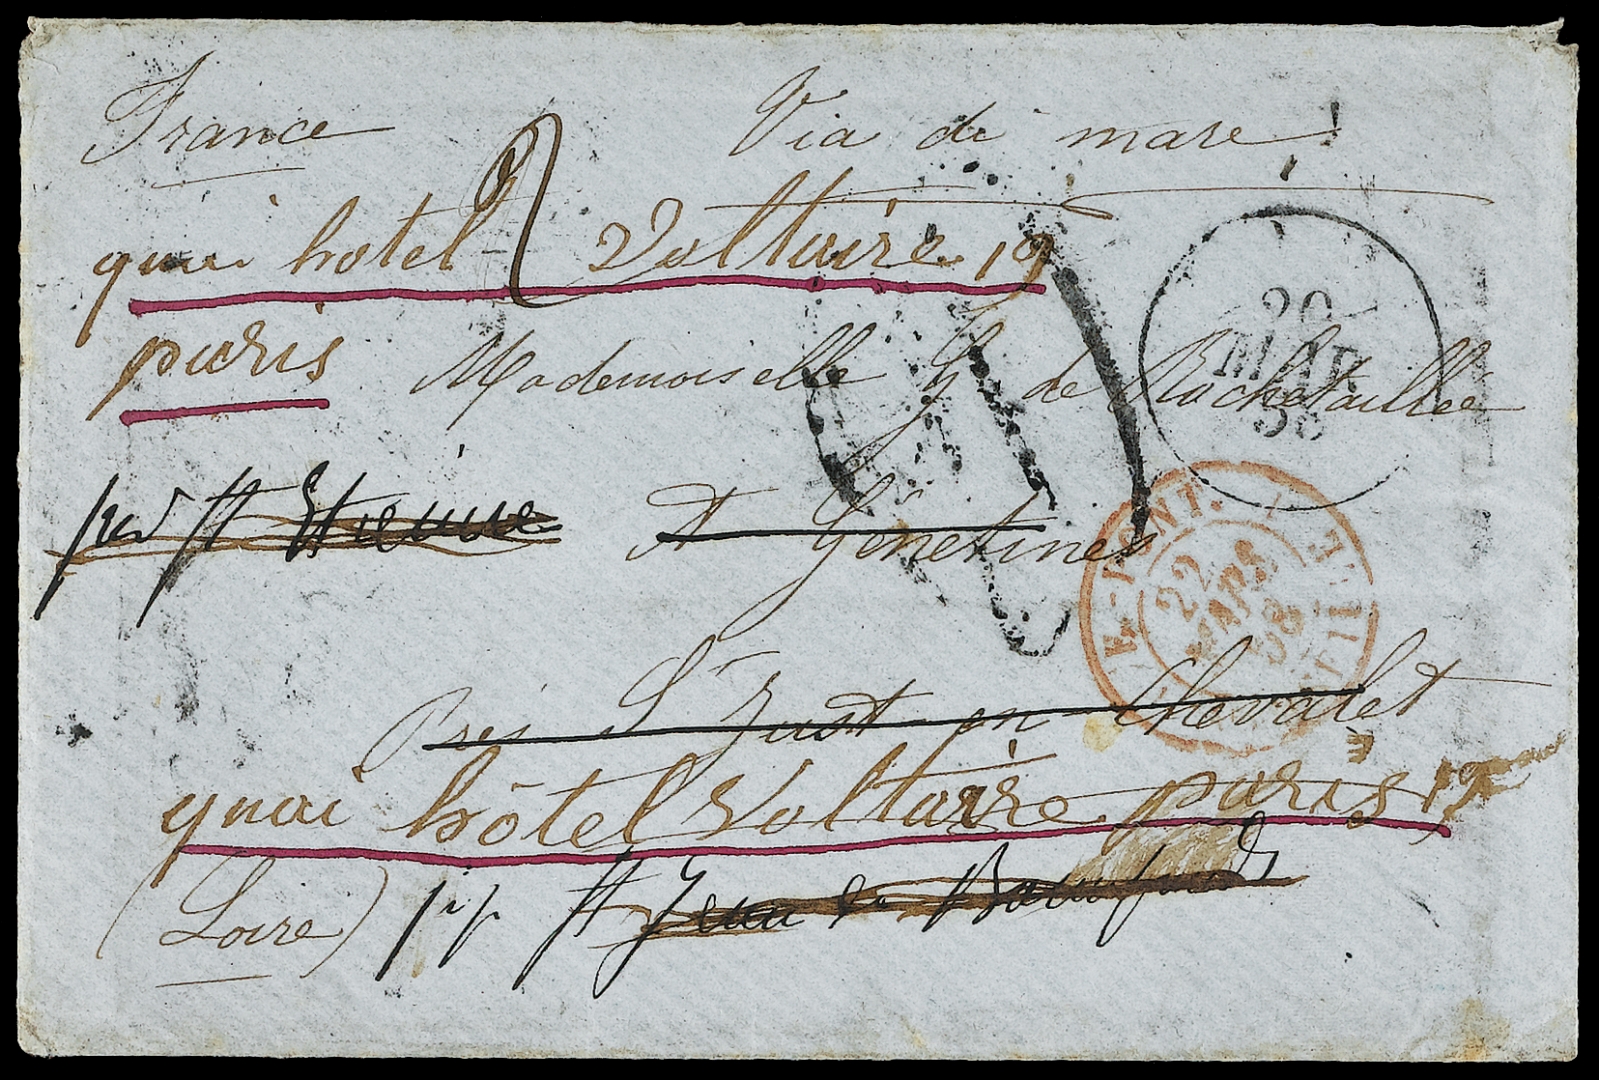 France
Via di mare
quai hotel Voltaire 19
paris
Mademoiselle G de Rochetaillée
20
MAR
58
par St Etienne
A Génetines
E. PONT.
22
MARS
58
Près St Just en Chevalet
quai hôtel Voltaire paris 19
(Loire)
St Jean de